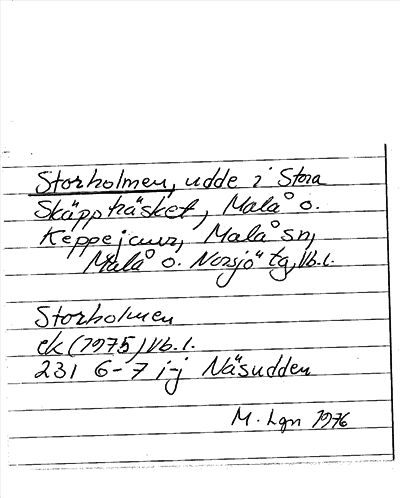 Storholmen, udde i Stora
Skäppträsket, Malå o.
Keppejaur, Malå sn,
Malå o. Norsjö tg, Vb. l.
Storholmen
ek (1975) Vb. l.
231 6-7 i-j Näsudden
M. Lgn 1976